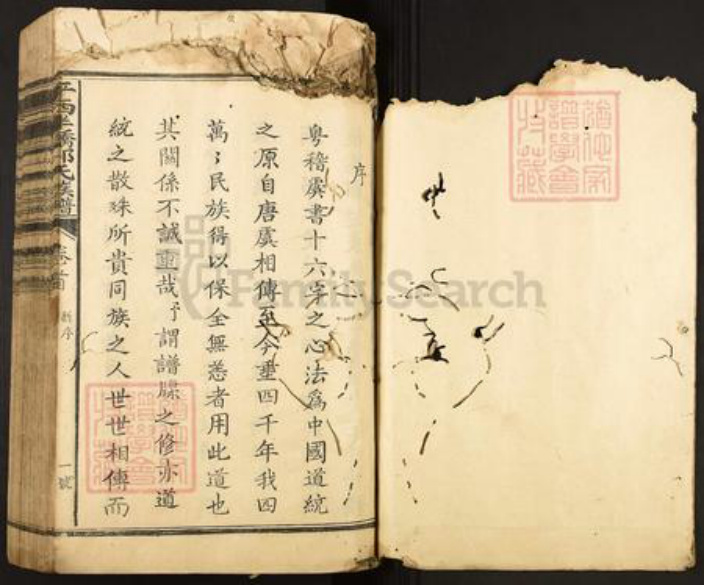 序
粵稽虞書十六字之心法為中國道統
之原自唐虞相傳至今垂四千年我四
萬萬民族得以保全無恙者用此道也
其關係不誠重哉予謂譜牒之修亦道
統之散殊所貴同族之人世世相傳而
氏族譜
卷首
新序
一號
FamilySearch